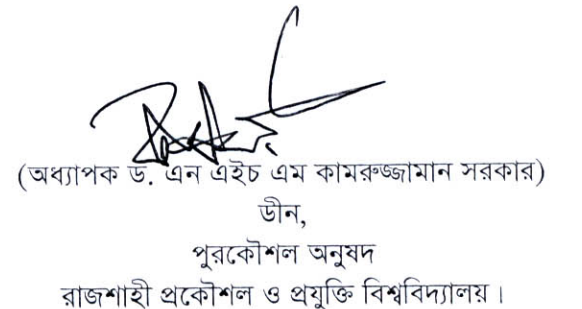 (অধ্যাপক ড. এন এইচ এম কামরুজ্জামান সরকার)
ডীন,
পুরকৌশল অনুষদ
রাজশাহী প্রকৌশল ও প্রযুক্তি বিশ্ববিদ্যালয়।